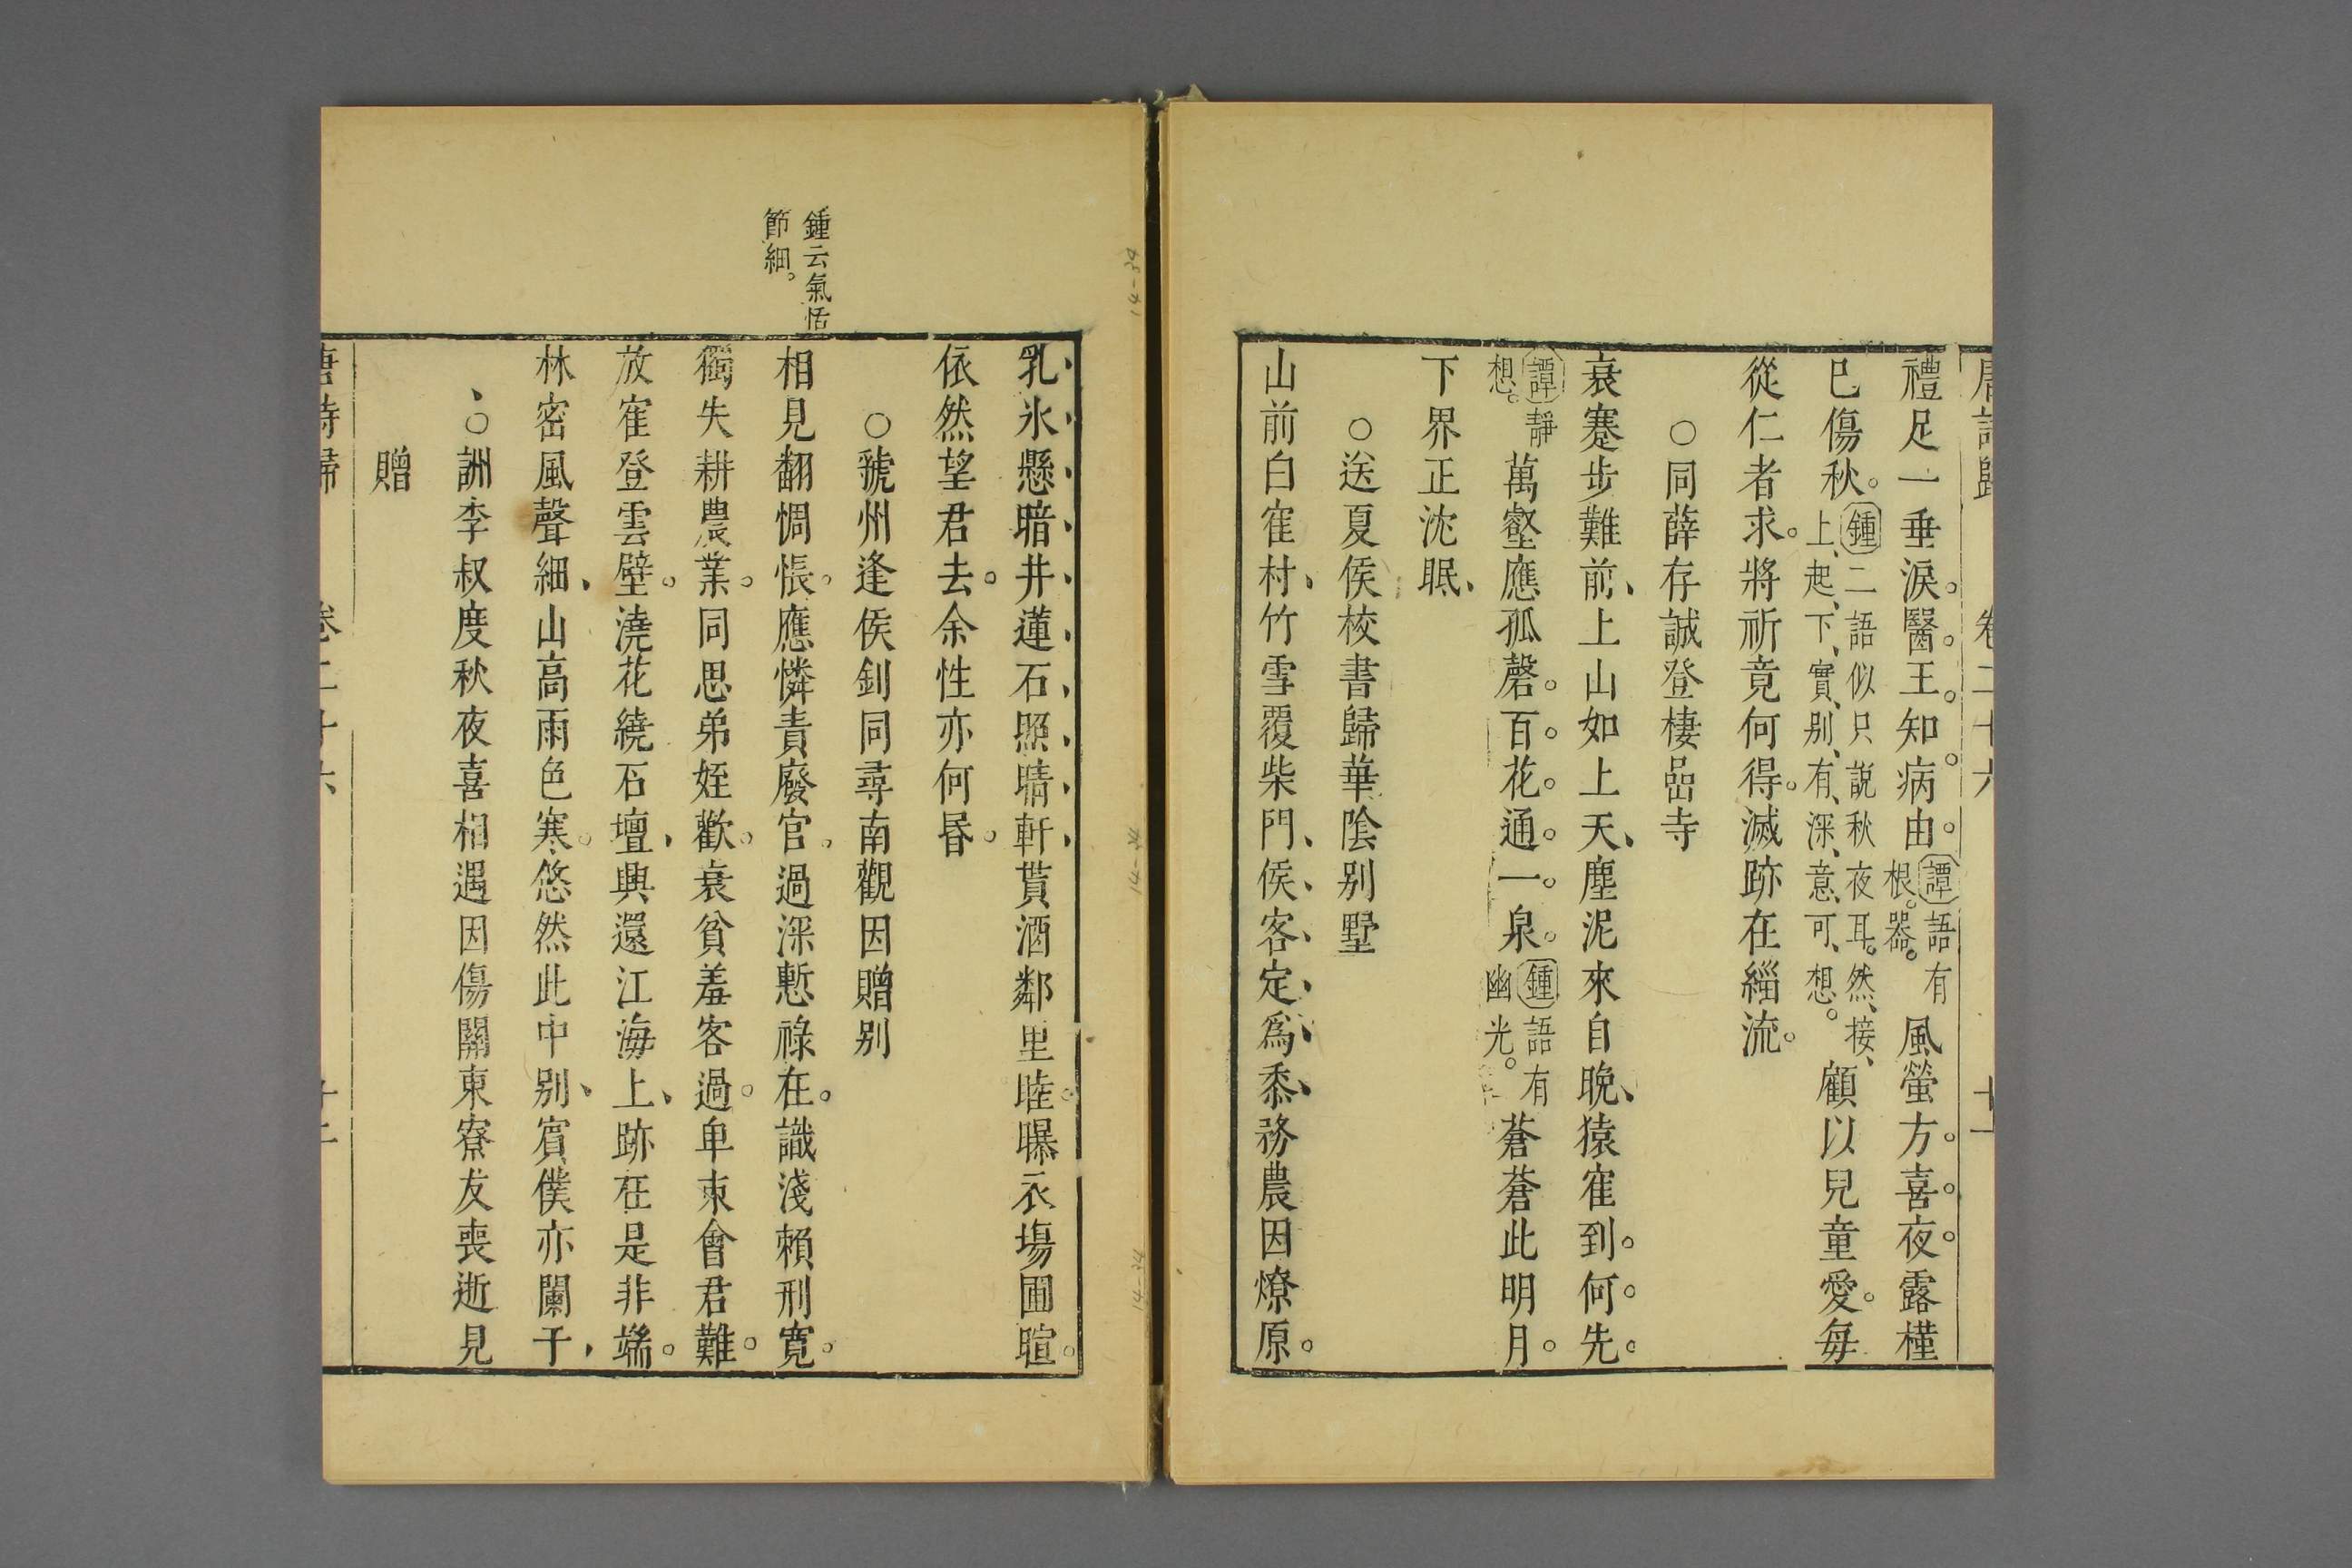 唐詩歸 卷二十六 十一
禮足一垂淚醫王知病由譚語有根器風螢方喜夜露槿
巳傷秋鍾二語似只說秋夜耳然接上起下實别有深意可想顧以兒童愛每
從仁者求將祈竟何得滅跡在緇流
○同薛存誠登棲嵒寺
衰蹇步難前上山如上天塵泥來自晩猿隺到何先
譚靜想萬壑應孤磬百花通一泉鍾語有幽光蒼蒼此明月
下界正沈眠
○送夏侯校書歸華隂别墅
山前白隺村竹雪覆柴門侯客定爲黍務農因燎原
乳氷懸暗井蓮石照晴軒貰酒鄰里睦曝衣塲圃暄
依然望君去余性亦何昬
○虢州逢侯釗同尋南觀因贈别
鍾云氣恬
節細
相見翻惆悵應憐責廢官過深慙祿在識淺賴刑寛
獨失耕農業同思弟姪歡衰貧羞客過卑束會君難
放隺登雲壁澆花繞石壇興還江海上跡在是非端
林密風聲細山高雨色寒悠然此中别賔僕亦闌干
○詶李叔度秋夜喜相遇因傷關東寮友喪逝見
贈
唐詩歸 卷二十六 十二